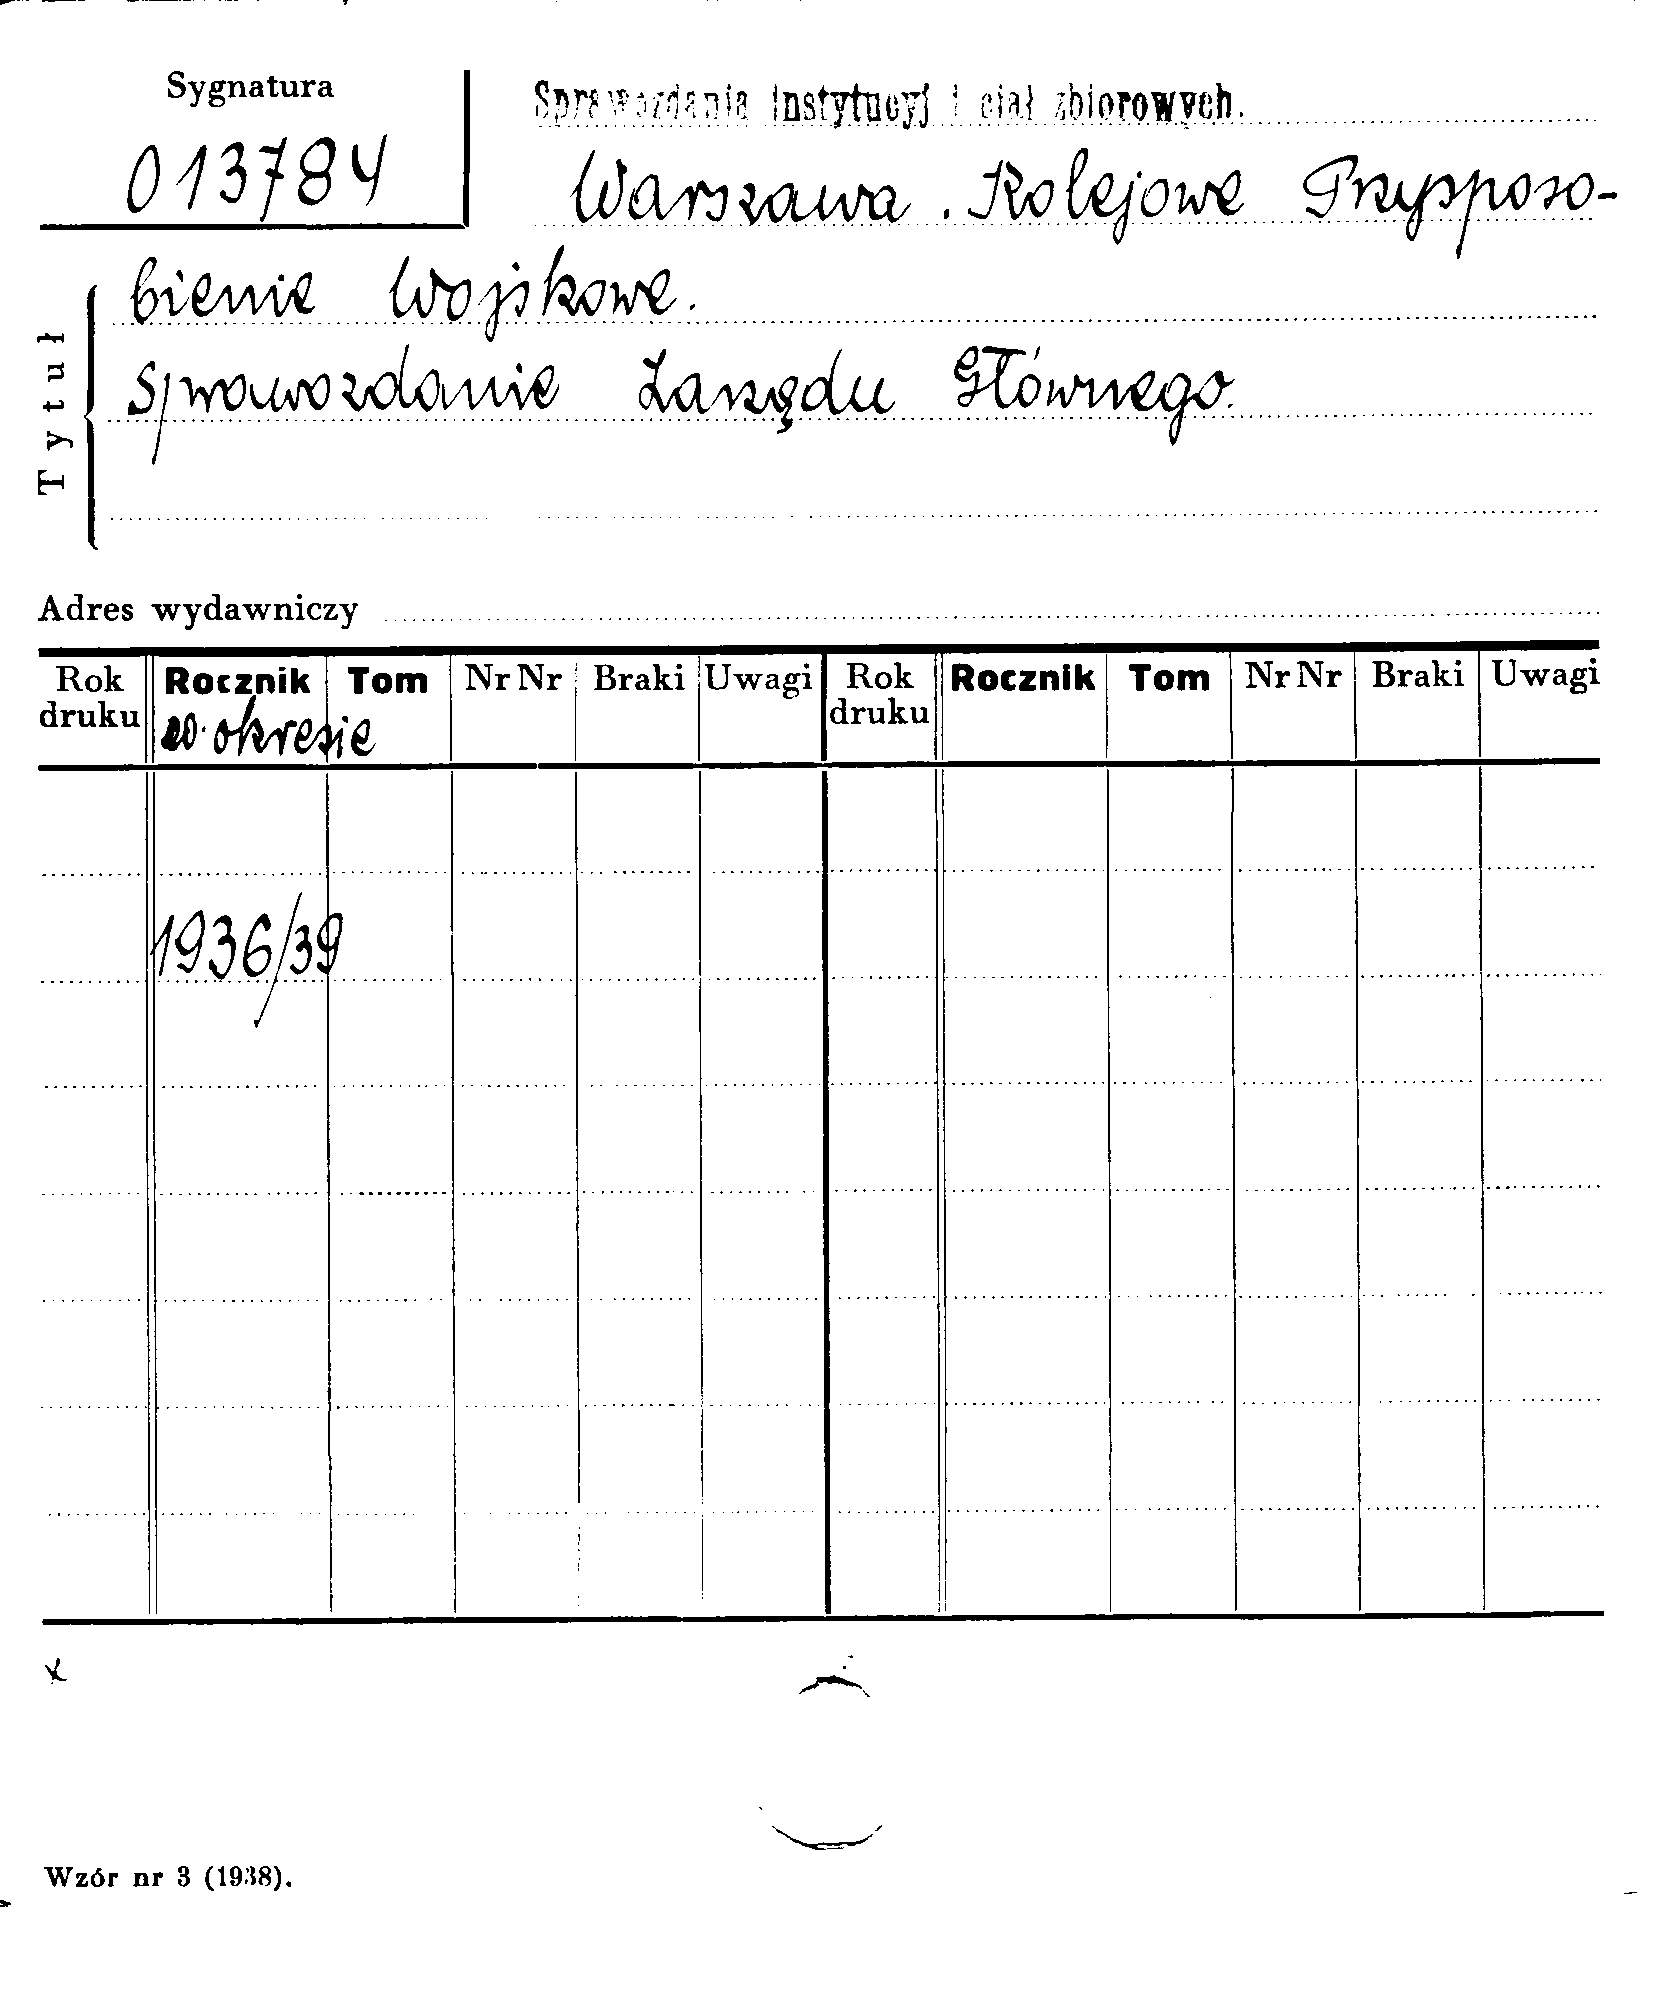 Sygnatura
013784
Sprawozdania instytucyj i ciał zbiorowych.
Warszawa. Kolejowe Przysposo-
bienie Wojskowe.
Tytuł
Sprawozdanie Zarządu Głównego.
Adres wydawniczy
Rok druku Rocznik Tom Nr Nr Braki Uwagi Rok druku Rocznik Tom Nr Nr Braki Uwagi
w okresie
1936/39
x
Wzór nr 3 (1938).